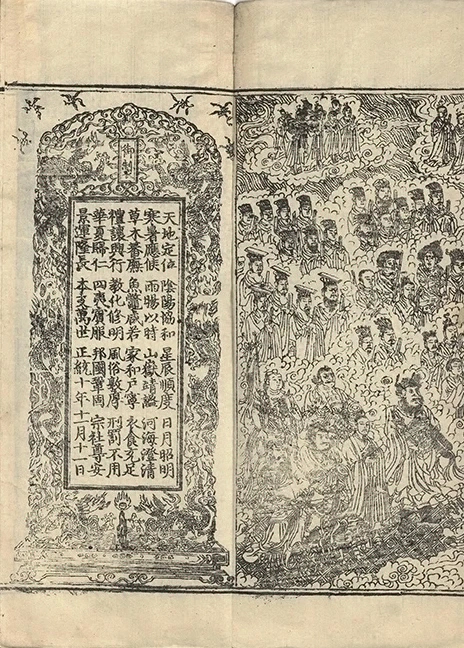 天地定位 陰陽協和 星辰順度 日月昭明
寒暑應候 雨暘以時 山嶽靖謐 河海澄清
草木蕃廡 魚鼈咸若 家和戶寧 衣食充足
禮讓興行 教化修明 風俗敦厚 刑罰不用
華夏歸仁 四夷賓服 邦國鞏固 宗社尊安
景運隆長 本支萬世 正統十年十一月十一日